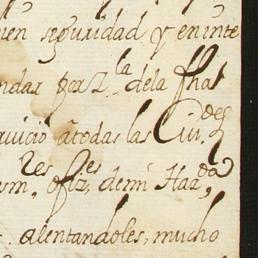 uen seguridad y en inte
ndar por l.la dela fha
ruicio átodas las Ciu.des
um.res ofiz.es demi Haz.da
alentandoles, mucho